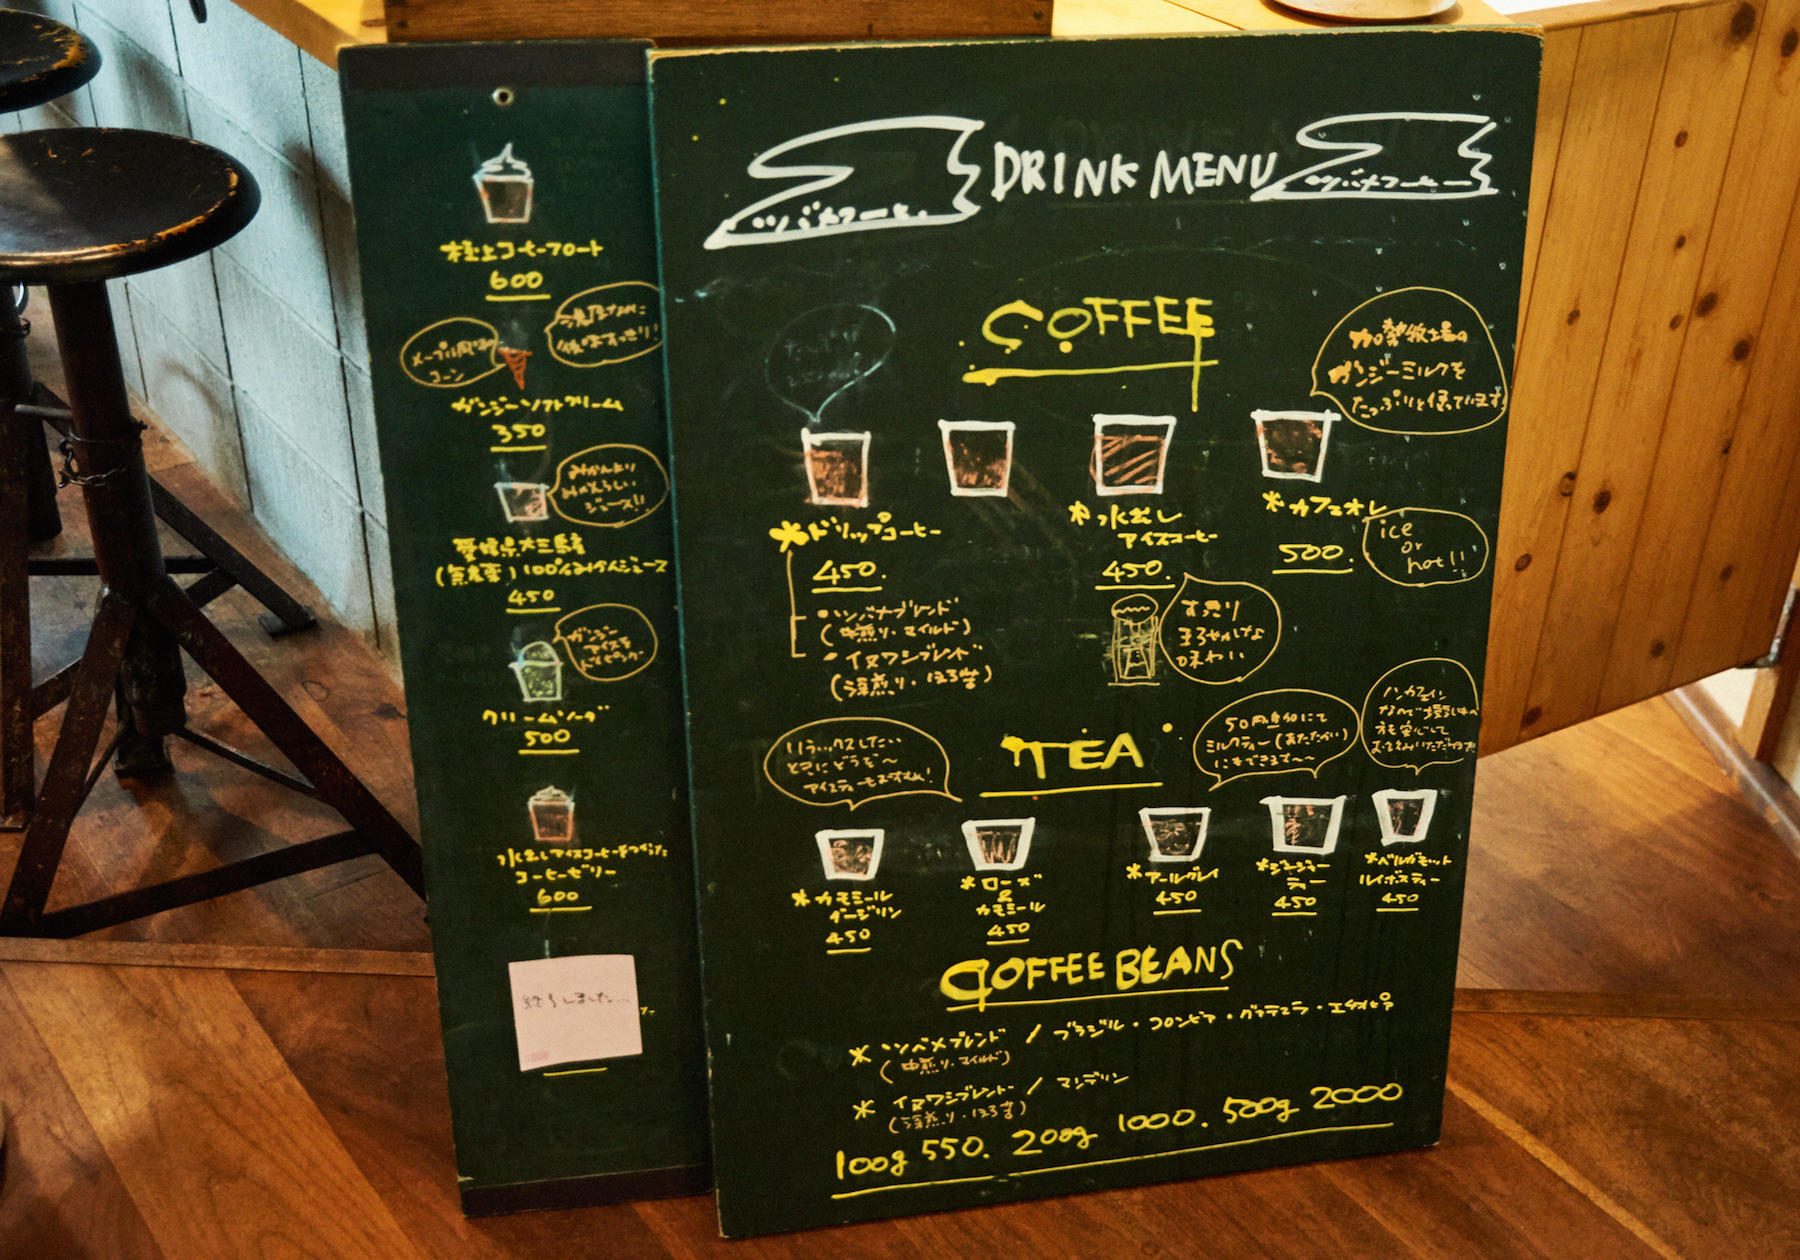 極上コーヒーフロート
600
メープル風味の
コーン
濃厚なのに
後味すっきり!
ガンジーソフトクリーム
350
みかんより
みかんらしい
ジュース!!
愛媛県大三島産
(無農薬)100%みかんジュース
450
ガンジー
アイスを
トッピング
クリームソーダ
500
水出しアイスコーヒーでつくった
コーヒーゼリー
600
終了しました...
ツバメコーヒー
DRINK MENU
ツバメコーヒー
COFFEE
加勢牧場の
ガンジーミルクを
たっぷりと使っています
*ドリップコーヒー
450.
・ツバメブレンド
(中煎り・マイルド)
・イヌワシブレンド
(深煎り・ほろ苦)
*水出し
アイスコーヒー
450.
すっきり
まろやかな
味わい
*カフェオレ
500.
ice
or
hot!!
TEA
リラックスしたい
ときにどうぞ〜
アイスティーもおすすめ!
50円増しにて
ミルクティー(あたたかい)
にもできます〜〜
ノンカフェイン
なので
方も安心して
*カモミール
ダージリン
450
*ローズ
&
カモミール
450
*アールグレイ
450
*ジンジャー
ティー
450
*ベルガモット
ルイボスティー
450
COFFEE BEANS
* ツバメブレンド / ブラジル・コロンビア・グァテマラ・エチオピア
(中煎り・マイルド)
* イヌワシブレンド / マンデリン
(深煎り・ほろ苦)
100g 550. 200g 1000. 500g 2000